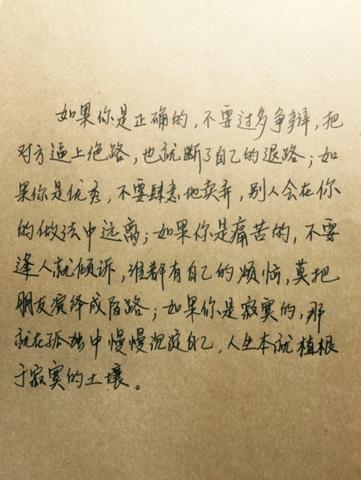 如果你是正确的，不要过多争辩，把
对方逼上绝路，也就断了自己的退路；如
果你是优秀，不要肆恚地卖弄，别人会在你
的做法中远离；如果你是痛苦的，不要
逢人就倾诉，谁都有自己的烦恼，莫把
朋友演绎成陌路；如果你是寂寞的，那
就在孤独中慢慢沉淀自己，人生本就植根
于寂寞的土壤。